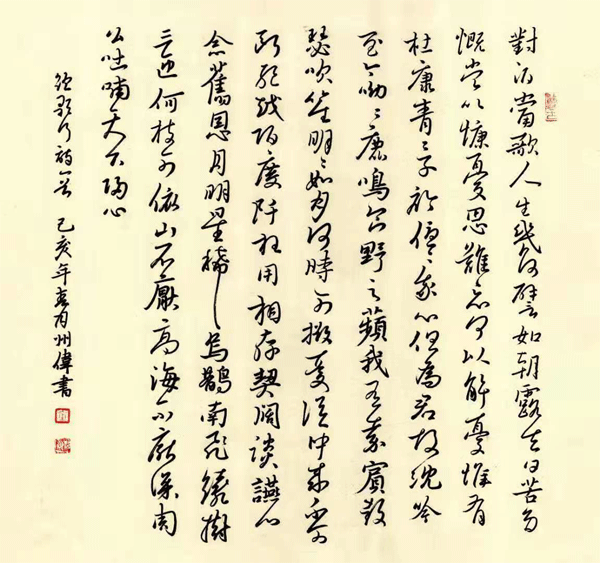 對酒當歌人生幾何譬如朝露去日苦多
慨當以慷憂思難忘何以解憂惟有
杜康青々子衿悠々我心但為君故沈吟
至今呦々鹿鳴食野之蘋我有嘉賓鼓
瑟吹笙明々如月何時可掇憂從中來不可
斷絕越陌度阡枉用相存契闊談讌心
念舊恩月明星稀烏鵲南飛繞樹
三匝何枝可依山不厭高海不厭深周
公吐哺天下歸心
短歌行詩一首 己亥年春月州偉書